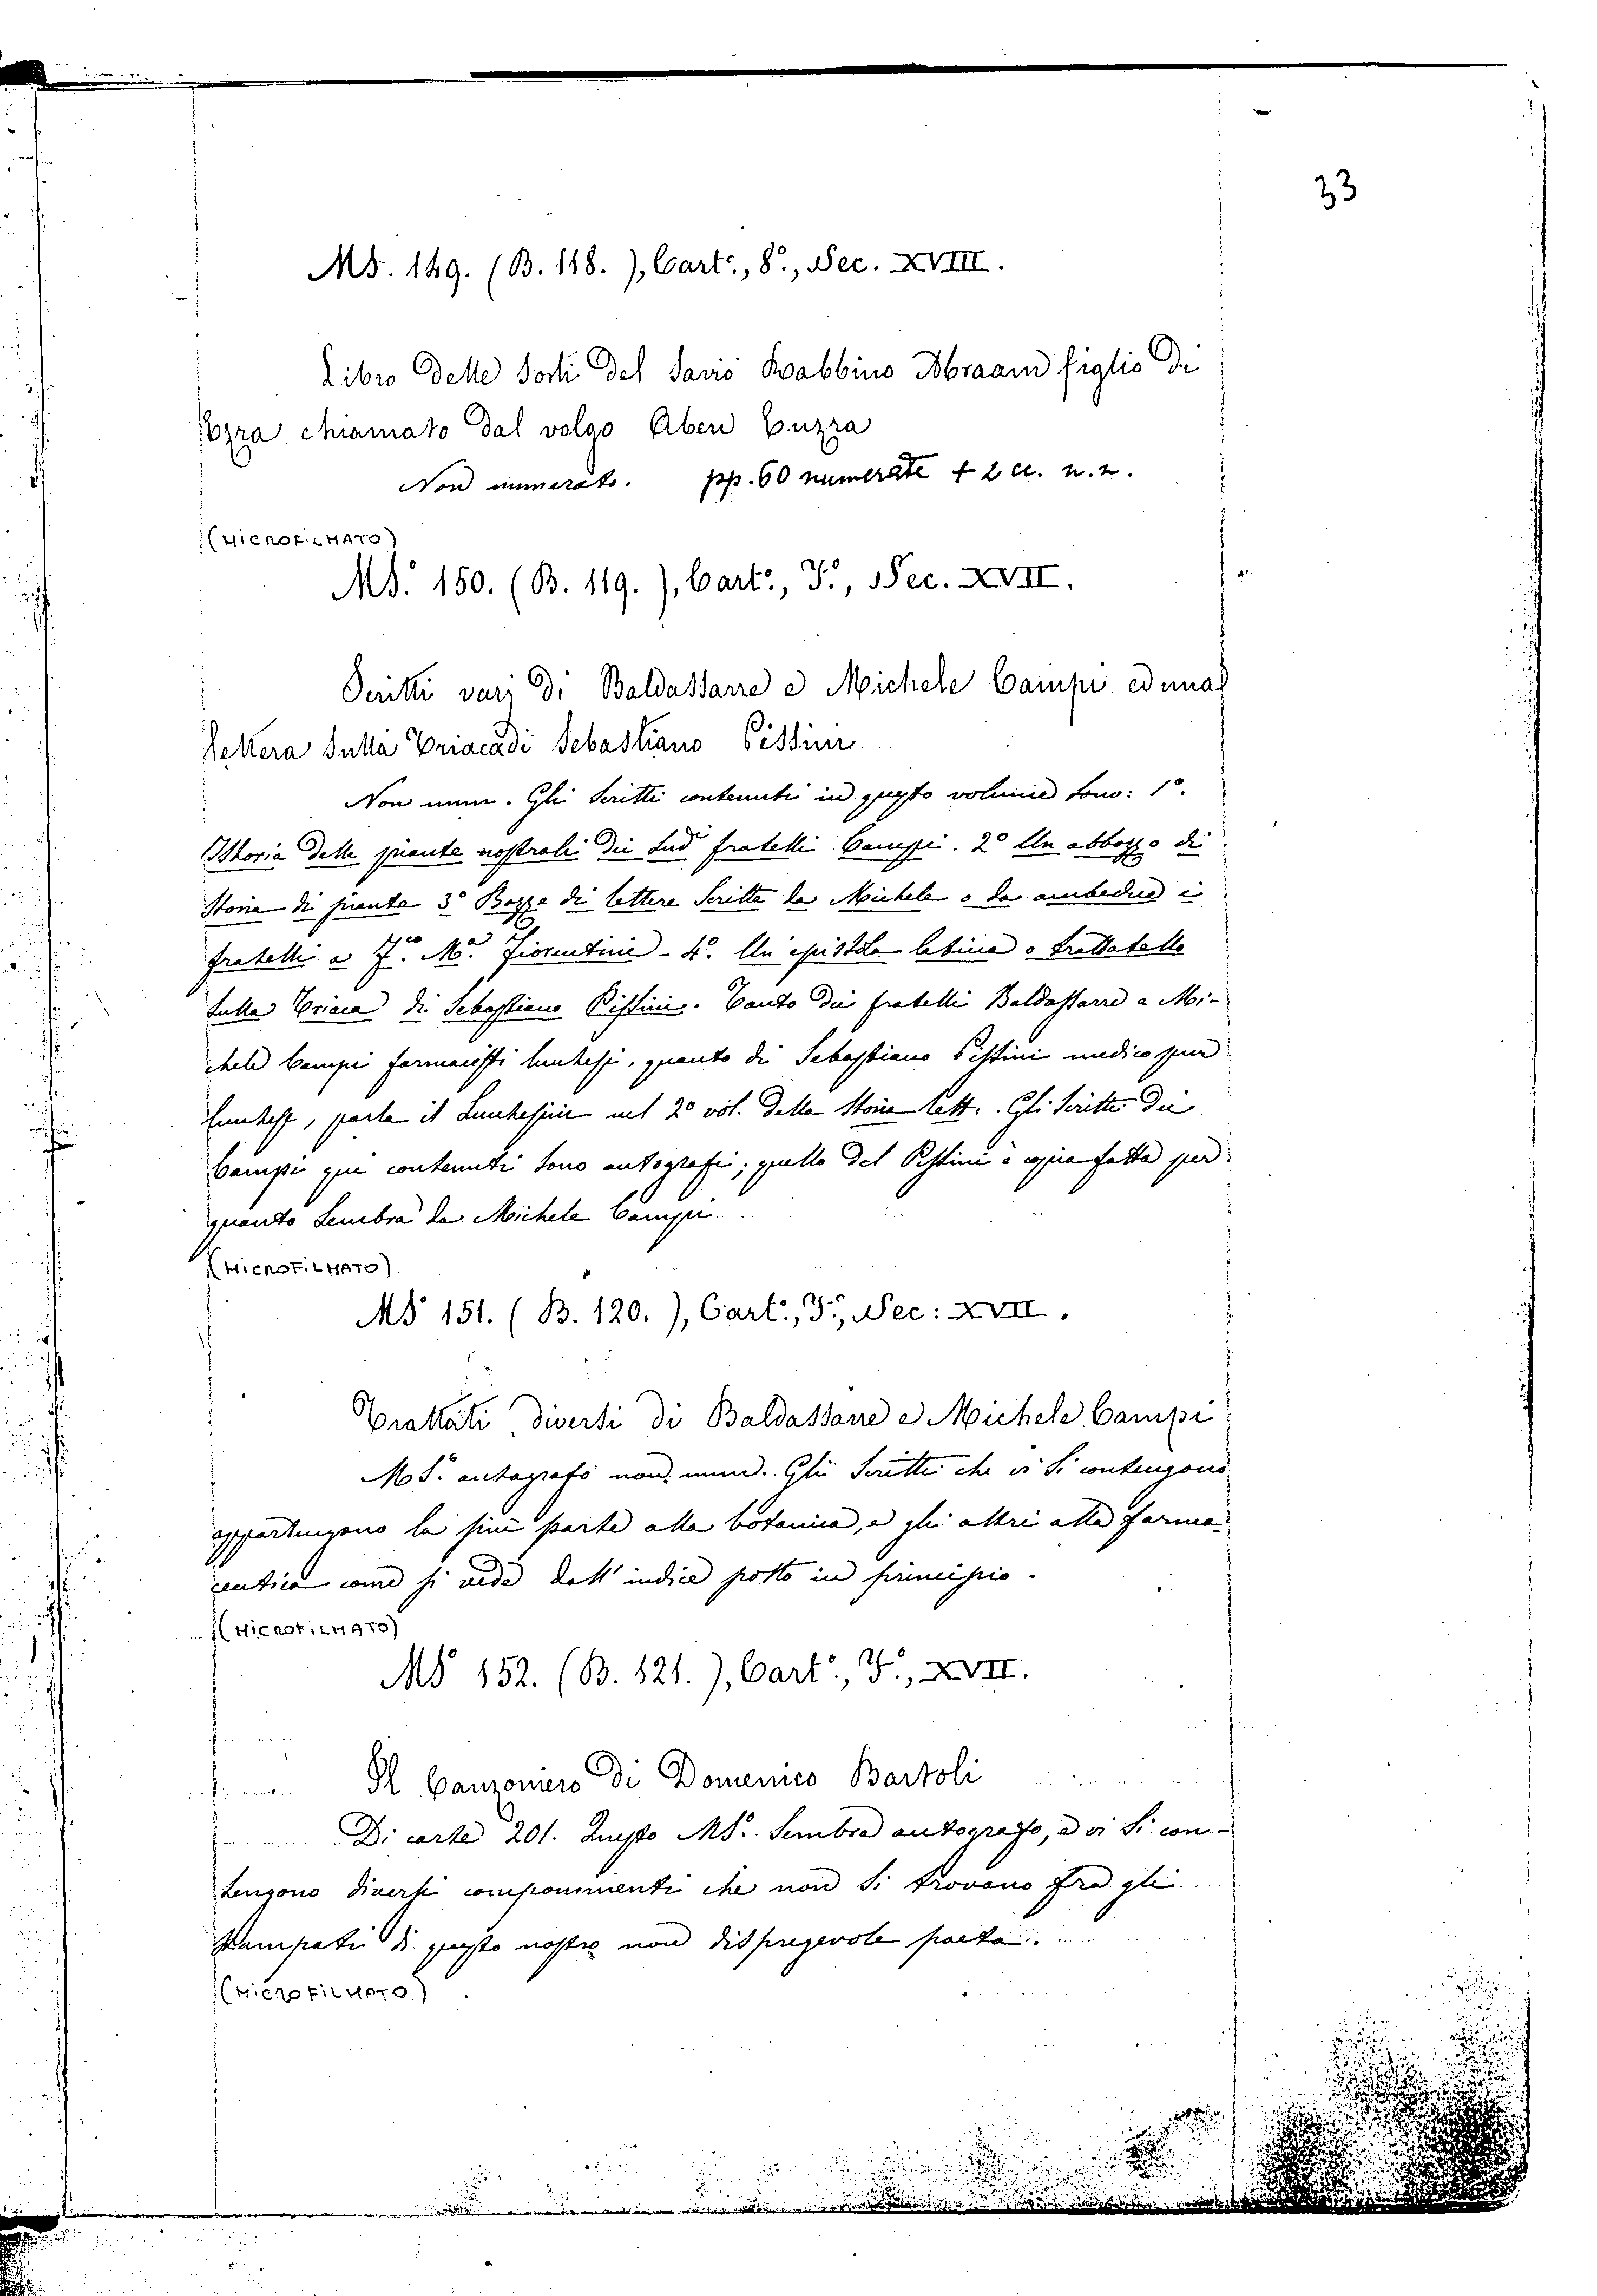 33
Ms. 149. (B. 118.), Cart., 8°, Sec. XVIII.
Libro delle Sorti del Savio Rabbino Abraam figlio di
Ezra chiamato dal volgo Aben Euzra
Non numerato. pp. 60 numerate + 2 cc. n. n.
(MICROFILMATO)
MS. 150. (B. 119.), Cart., F°, Sec. XVII.
Scritti varj di Baldassarre e Michele Campi ed una
lettera sulla Triaca di Sebastiano Pissini
Non num. Gli scritti contenuti in questo volume sono: 1°.
Istoria delle piante nostrali dei sud. fratelli Campi. 2° Un abbozzo di
storia di piante 3° Bozze di lettere scritte da Michele o da ambedue i
fratelli a F.co M.a Fiorentini - 4°. Un epistola latina o trattatello
sulla Triaca di Sebastiano Pissini. Tanto dei fratelli Baldassarre e Mi-
chele Campi farmacisti lucchesi, quanto di Sebastiano Pissini medico pur
lucchese, parla il Lucchesini nel 2° vol. della Storia lett. Gli scritti dei
Campi qui contenuti sono autografi; quello del Pissini è copia fatta per
quanto sembra da Michele Campi.
(MICROFILMATO)
MS 151. (B. 120.), Cart., F°, Sec: XVII.
Trattati diversi di Baldassarre e Michele Campi
MS. autografo non num. Gli scritti che vi si contengono
appartengono la più parte alla botanica, e gli altri alla farma-
ceutica come si vede dall'indice posto in principio.
(MICROFILMATO)
MS 152. (B. 121.), Cart., F°, XVII.
Il Canzoniero di Domenico Bartoli
Di carte 201. Questo MS. sembra autografo, e vi si con-
tengono diversi componimenti che non si trovano fra gli
stampati di questo nostro non dispregevole poeta.
(MICROFILMATO)